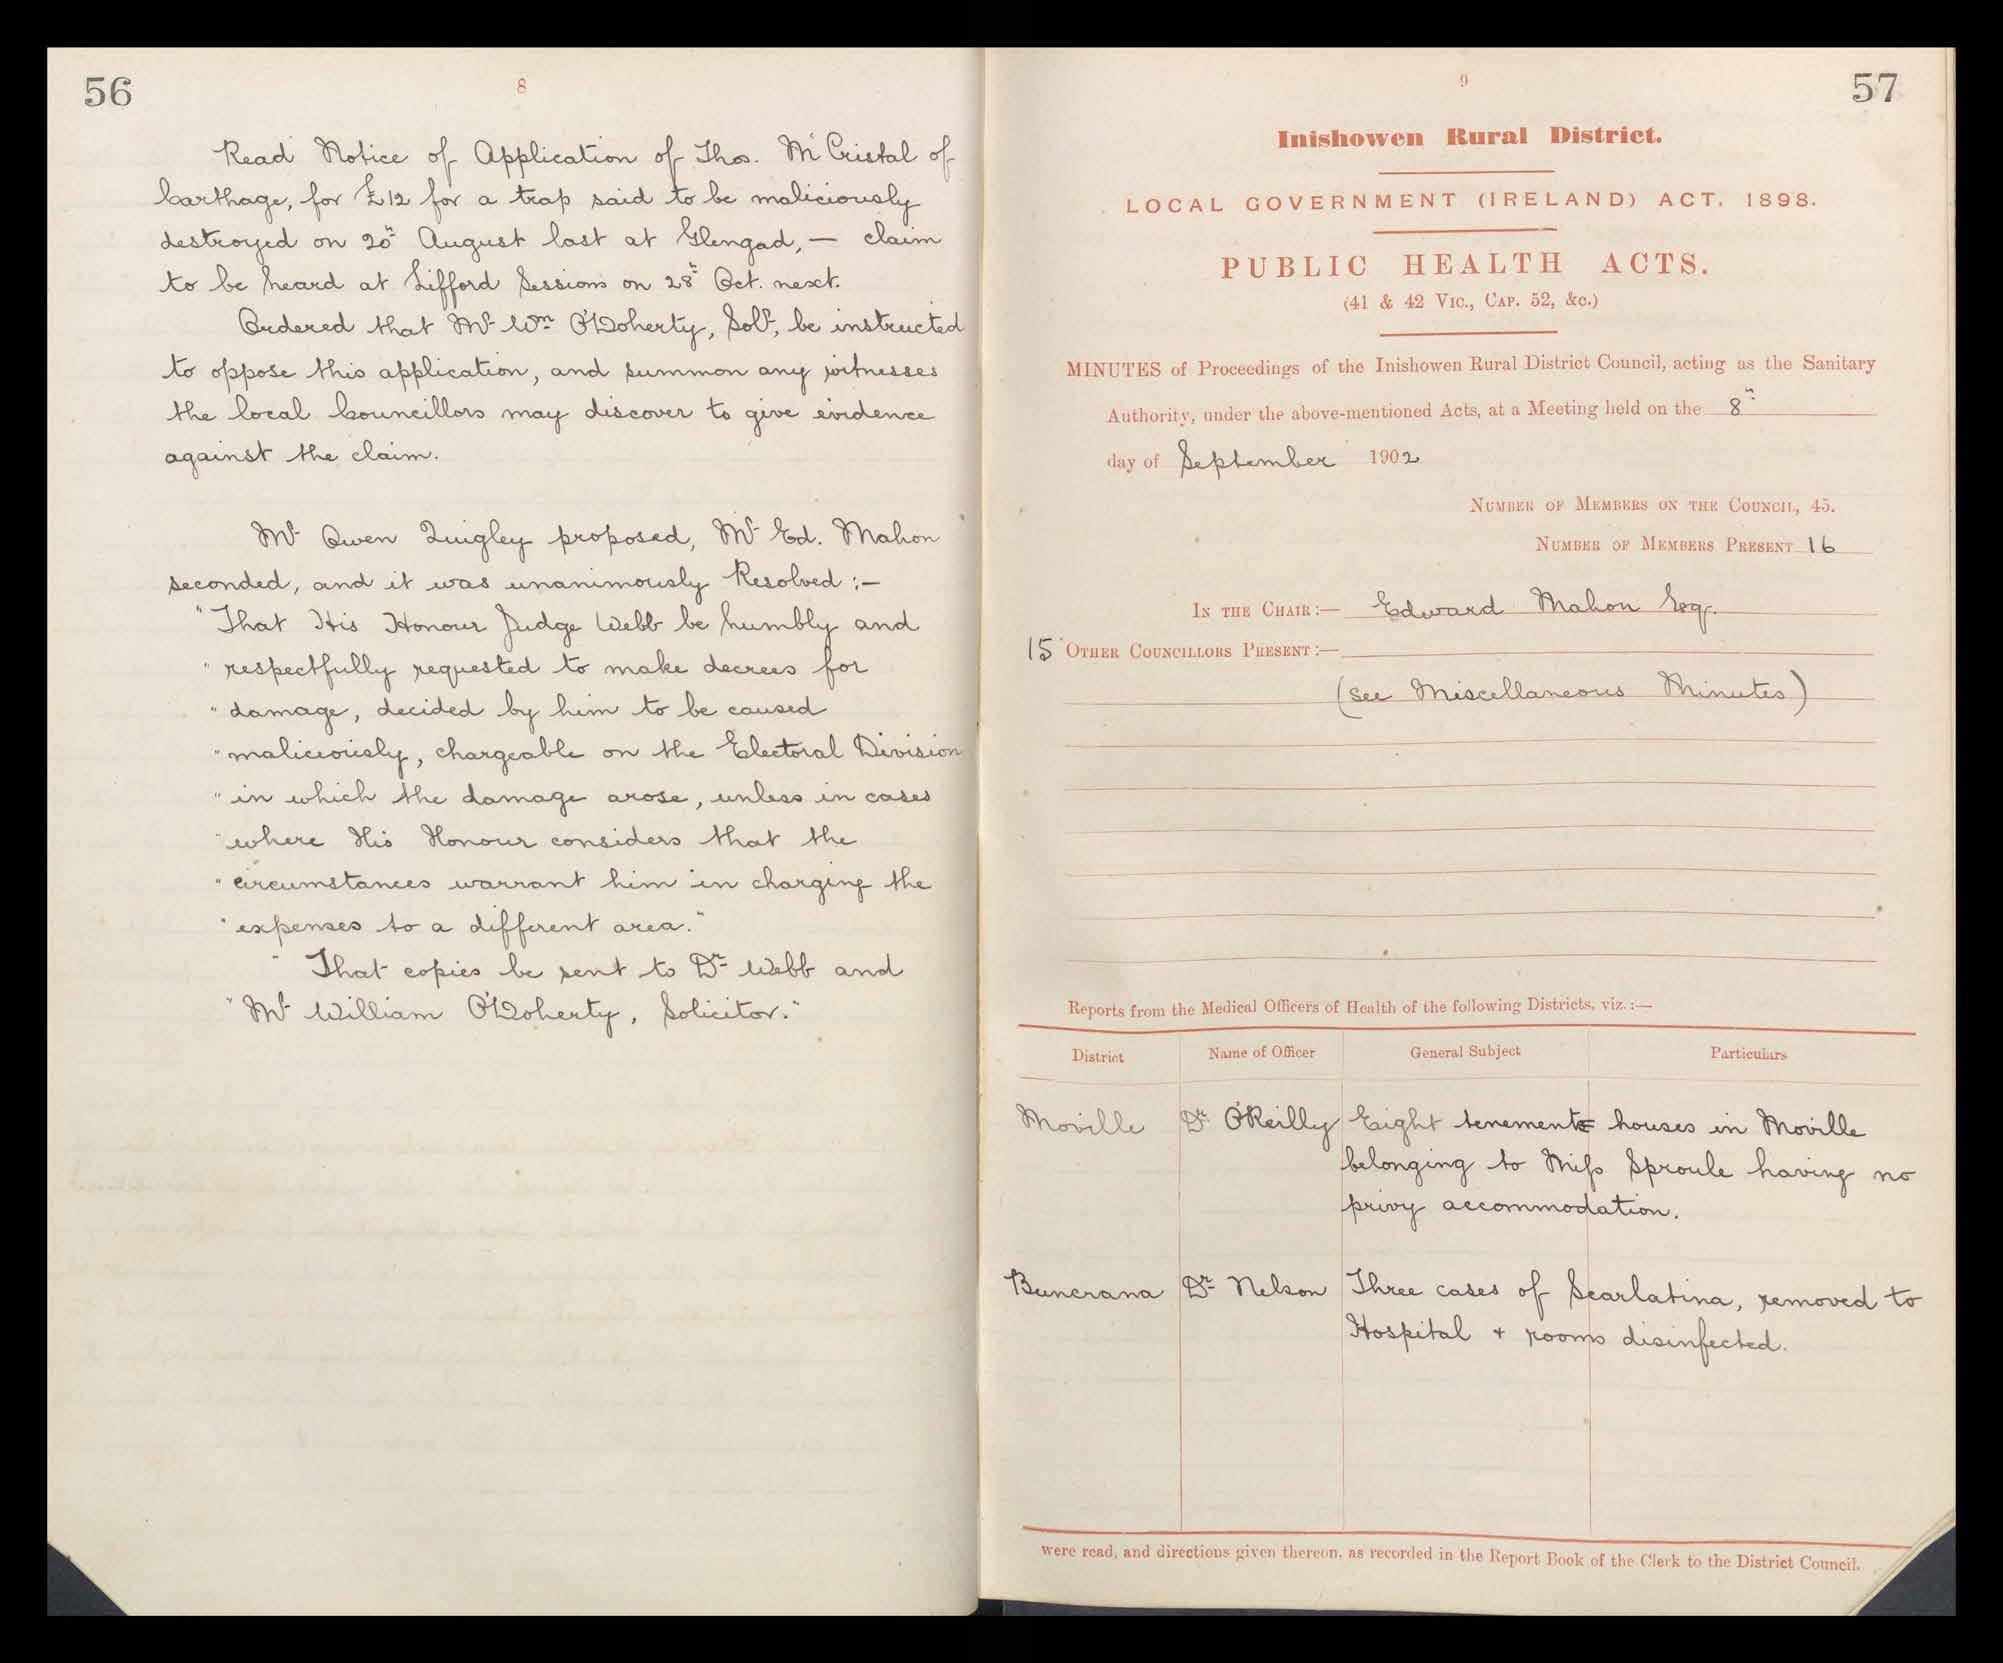 56
8
Read Notice of Application of Thos. McCristal of
Carthage, for £12 for a trap said to be maliciously
destroyed on 20th August last at Glengad, — claim
to be heard at Lifford Sessions on 28th Oct. next.
Ordered that Mr Wm O'Doherty, Solr, be instructed
to oppose this application, and summon any witnesses
the local Councillors may discover to give evidence
against the claim.
Mr Owen Quigley proposed, Mr Ed. Mahon
seconded, and it was unanimously Resolved :—
"That His Honour Judge Webb be humbly and
" respectfully requested to make decrees for
" damage, decided by him to be caused
" maliciously, chargeable on the Electoral Division
" in which the damage arose, unless in cases
" where His Honour considers that the
" circumstances warrant him in charging the
" expenses to a different area."
" That copies be sent to Dr Webb and
" Mr William O'Doherty, Solicitor."
9
57
Inishowen Rural District.
LOCAL GOVERNMENT (IRELAND) ACT, 1898.
PUBLIC HEALTH ACTS.
(41 & 42 Vic., Cap. 52, &c.)
MINUTES of Proceedings of the Inishowen Rural District Council, acting as the Sanitary
Authority, under the above-mentioned Acts, at a Meeting held on the 8th
day of September 1902
Number of Members on the Council, 45.
Number of Members Present 16
In the Chair :— Edward Mahon Esq.
15 Other Councillors Present :—
(see Miscellaneous Minutes)
Reports from the Medical Officers of Health of the following Districts, viz. :—
District Name of Officer General Subject Particulars
Moville Dr O'Reilly Eight tenement houses in Moville
belonging to Miss Sproule having no
privy accommodation.
Buncrana Dr Nelson Three cases of Scarlatina, removed to
Hospital + rooms disinfected.
were read, and directions given thereon, as recorded in the Report Book of the Clerk to the District Council.